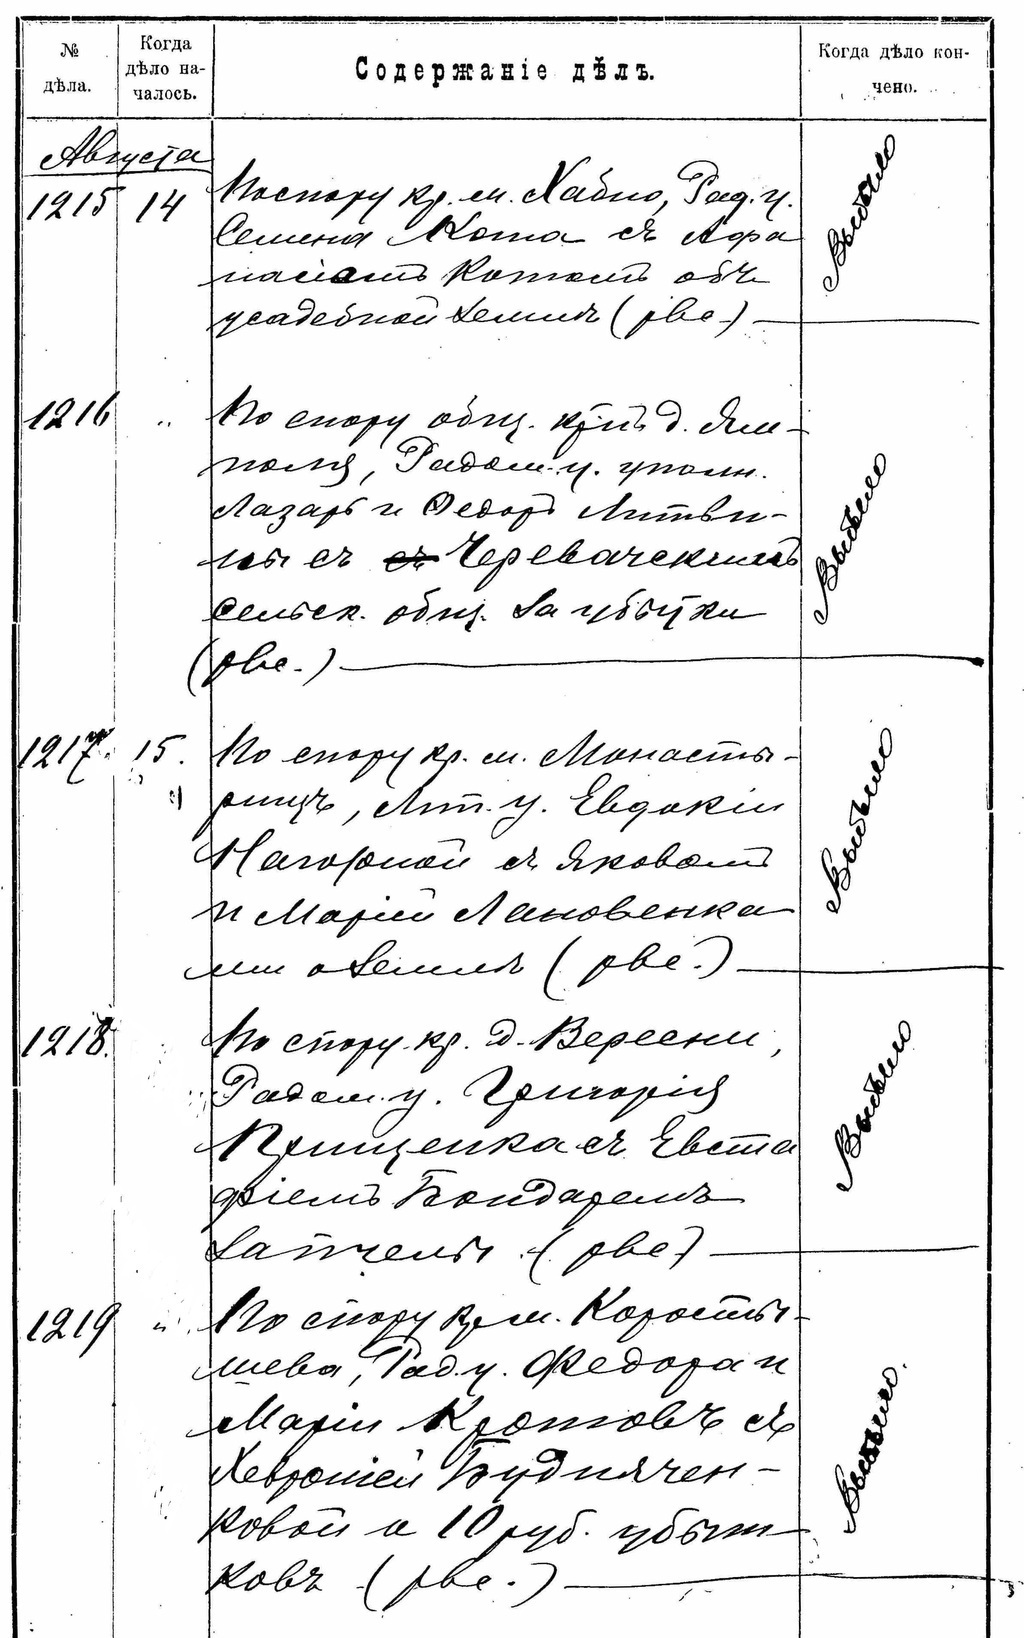 № дѣла.
Когда дѣло началось.
Содержаніе дѣлъ.
Когда дѣло кончено.
Августа
1215 14 По спору кр. м. Хабно, Рад. у.
Семена Кота съ Афа
насіемъ Котомъ объ
усадебной землѣ (рве.)
Выбыло
1216 " По спору общ. крнъ д. Ям-
поля, Радом. у. уполн.
Лазарь и Федоръ Литви-
ны съ съ Черевачскимъ
сельск. общ. за убытки
(рве.)
Выбыло
1217. 15. По спору кр. м. Монасты-
рищъ, Лип. у. Евдокіи
Нагорной съ Яковомъ
и Маріей Лановенка
ми о землѣ (рве.)
Выбыло
1218. По спору кр. д. Вересни,
Радом. у. Григорія
Прищепка съ Евста
фіемъ Бондаремъ
за пчелы. (рве)
Выбыло
1219 " По спору кр. м. Коросты-
шева, Рад. у. Федора и
Маріи Кротовъ съ
Хевроніей Будничен-
ковой о 10 руб. убыт
ковъ (рве.)
Выбыло.